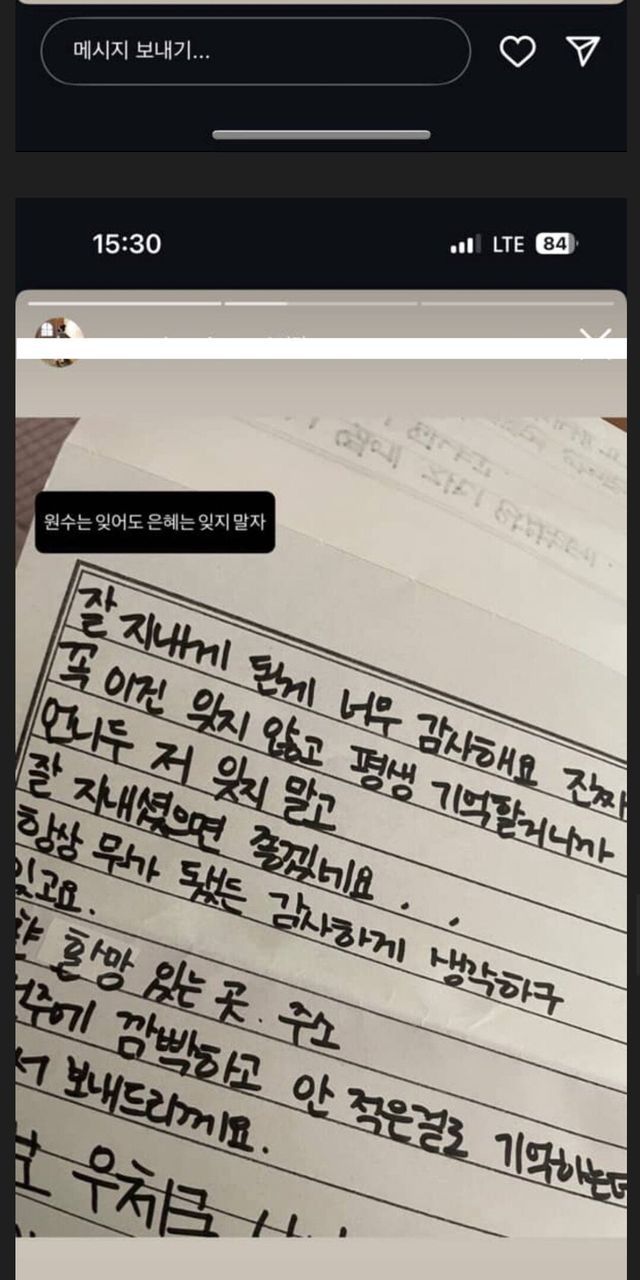 메시지 보내기...
15:30
LTE 84
원수는 잊어도 은혜는 잊지 말자
잘 지내게 된게 너무 감사해요 진짜
꼭 이진 잊지 않고 평생 기억할거니까
언니두 저 잊지 말고
잘 지내셨으면 좋겠네요 . .
항상 뭐가 됐든 감사하게 생각하구
있고요.
희망 있는 곳. 주소
깜빡하고 안 적은걸로 기억하는데
보내드리께요.
우체국